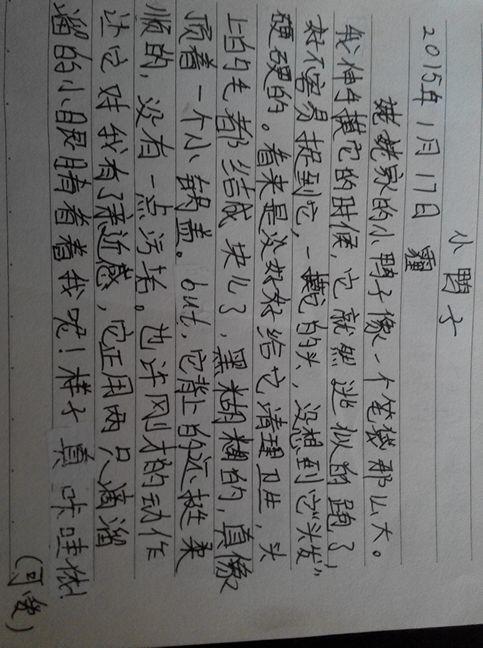 小鸭子
2015年1月17日 霾
姥姥家的小鸭子像一个笔袋那么大。
我伸手摸它的时候，它就然逃似的跑了，
好不容易捉到它，一摸的头，没想到它“头发”
硬硬的。看来是没好好给它清理卫生，头
上的毛都结成块儿了，黑糊糊的，真像
顶着一个小锅盖。but，它背上的还挺柔
顺的，没有一点污垢。也许刚才的动作
让它对我有了亲近感，它正用两只滴溜
溜的小眼睛看着我呢！样子真咔哇依！
(可爱)